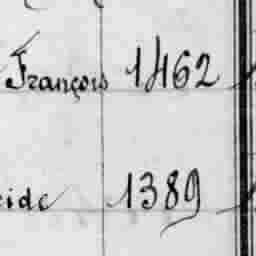 François 1462
eide 1389